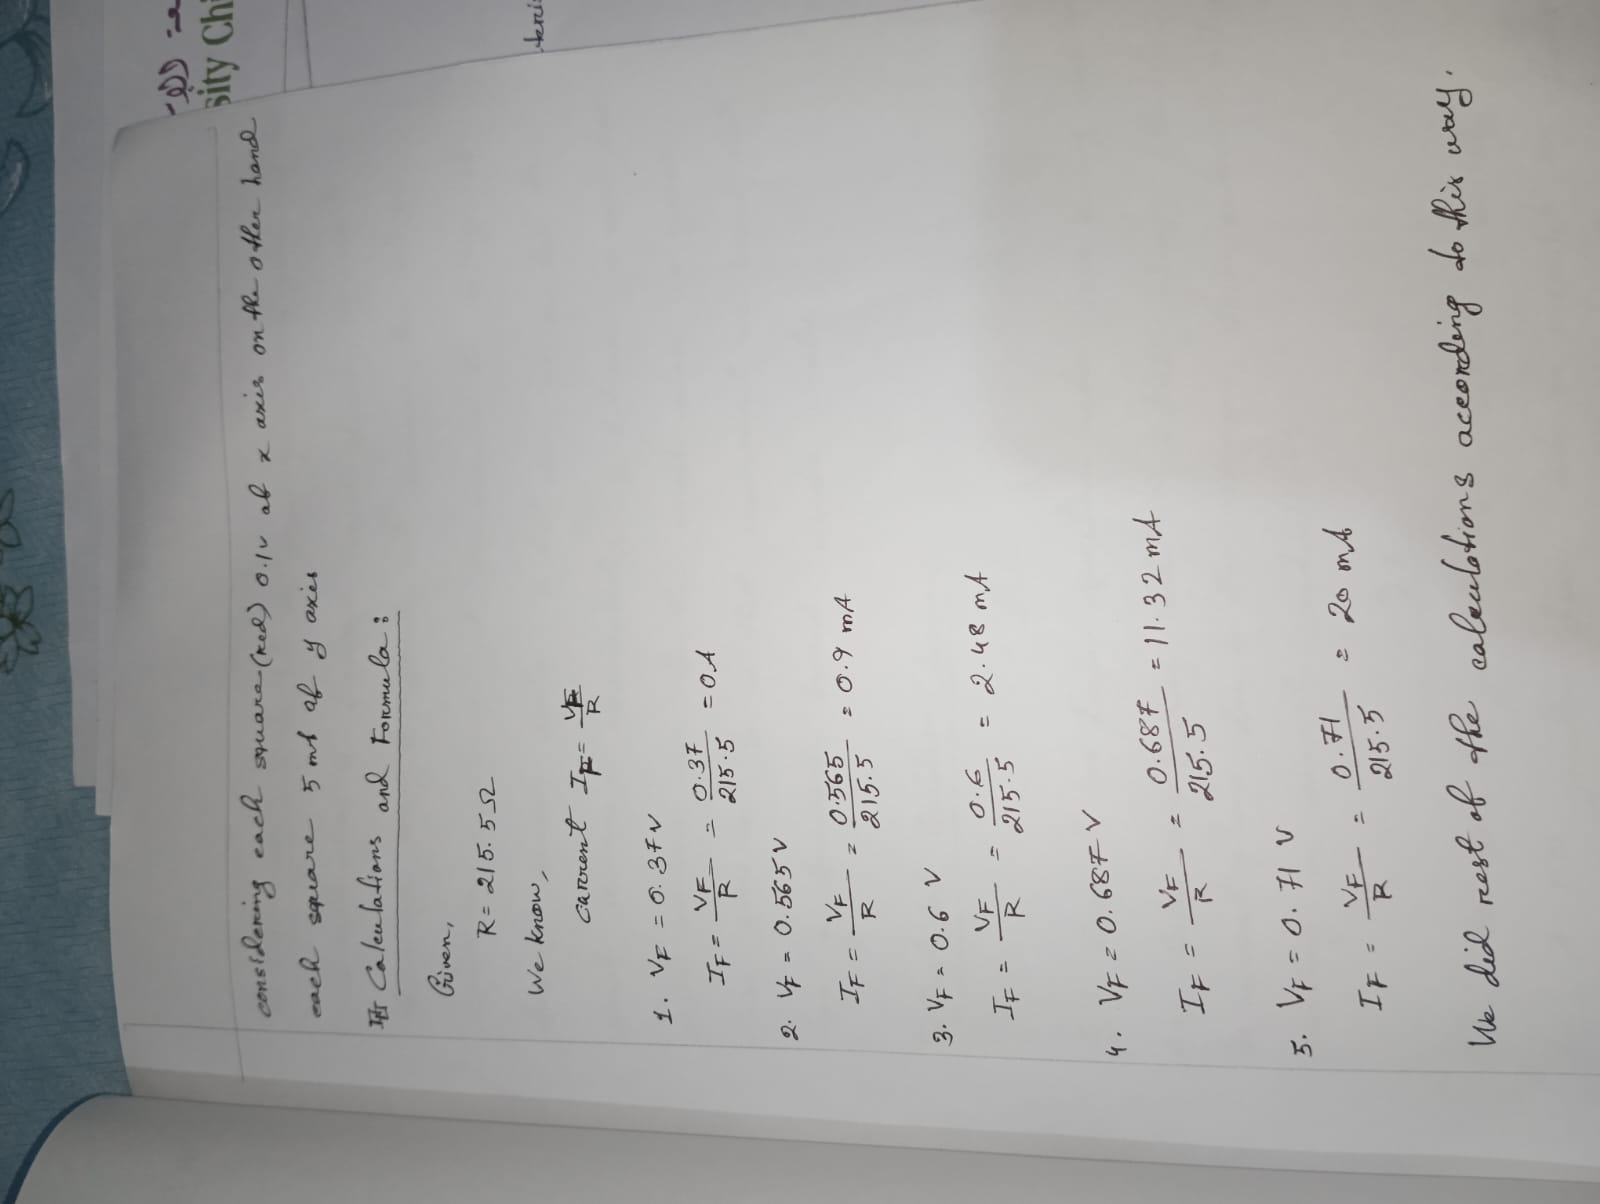 sity Chi
considering each square (red) 0.1v of x axis on the other hand
each square 5 ml of y axis
Calculations and Formula:
Given,
R = 215.5 Ω
We know,
current I_F = V_F/R
1. V_F = 0.37 V
I_F = V_F/R = 0.37/215.5 = 0 A
2. V_F = 0.565 V
I_F = V_F/R = 0.565/215.5 = 0.9 mA
3. V_F = 0.6 V
I_F = V_F/R = 0.6/215.5 = 2.48 mA
4. V_F = 0.687 V
I_F = V_F/R = 0.687/215.5 = 11.32 mA
5. V_F = 0.71 V
I_F = V_F/R = 0.71/215.5 = 20 mA
We did rest of the calculations according to this way.